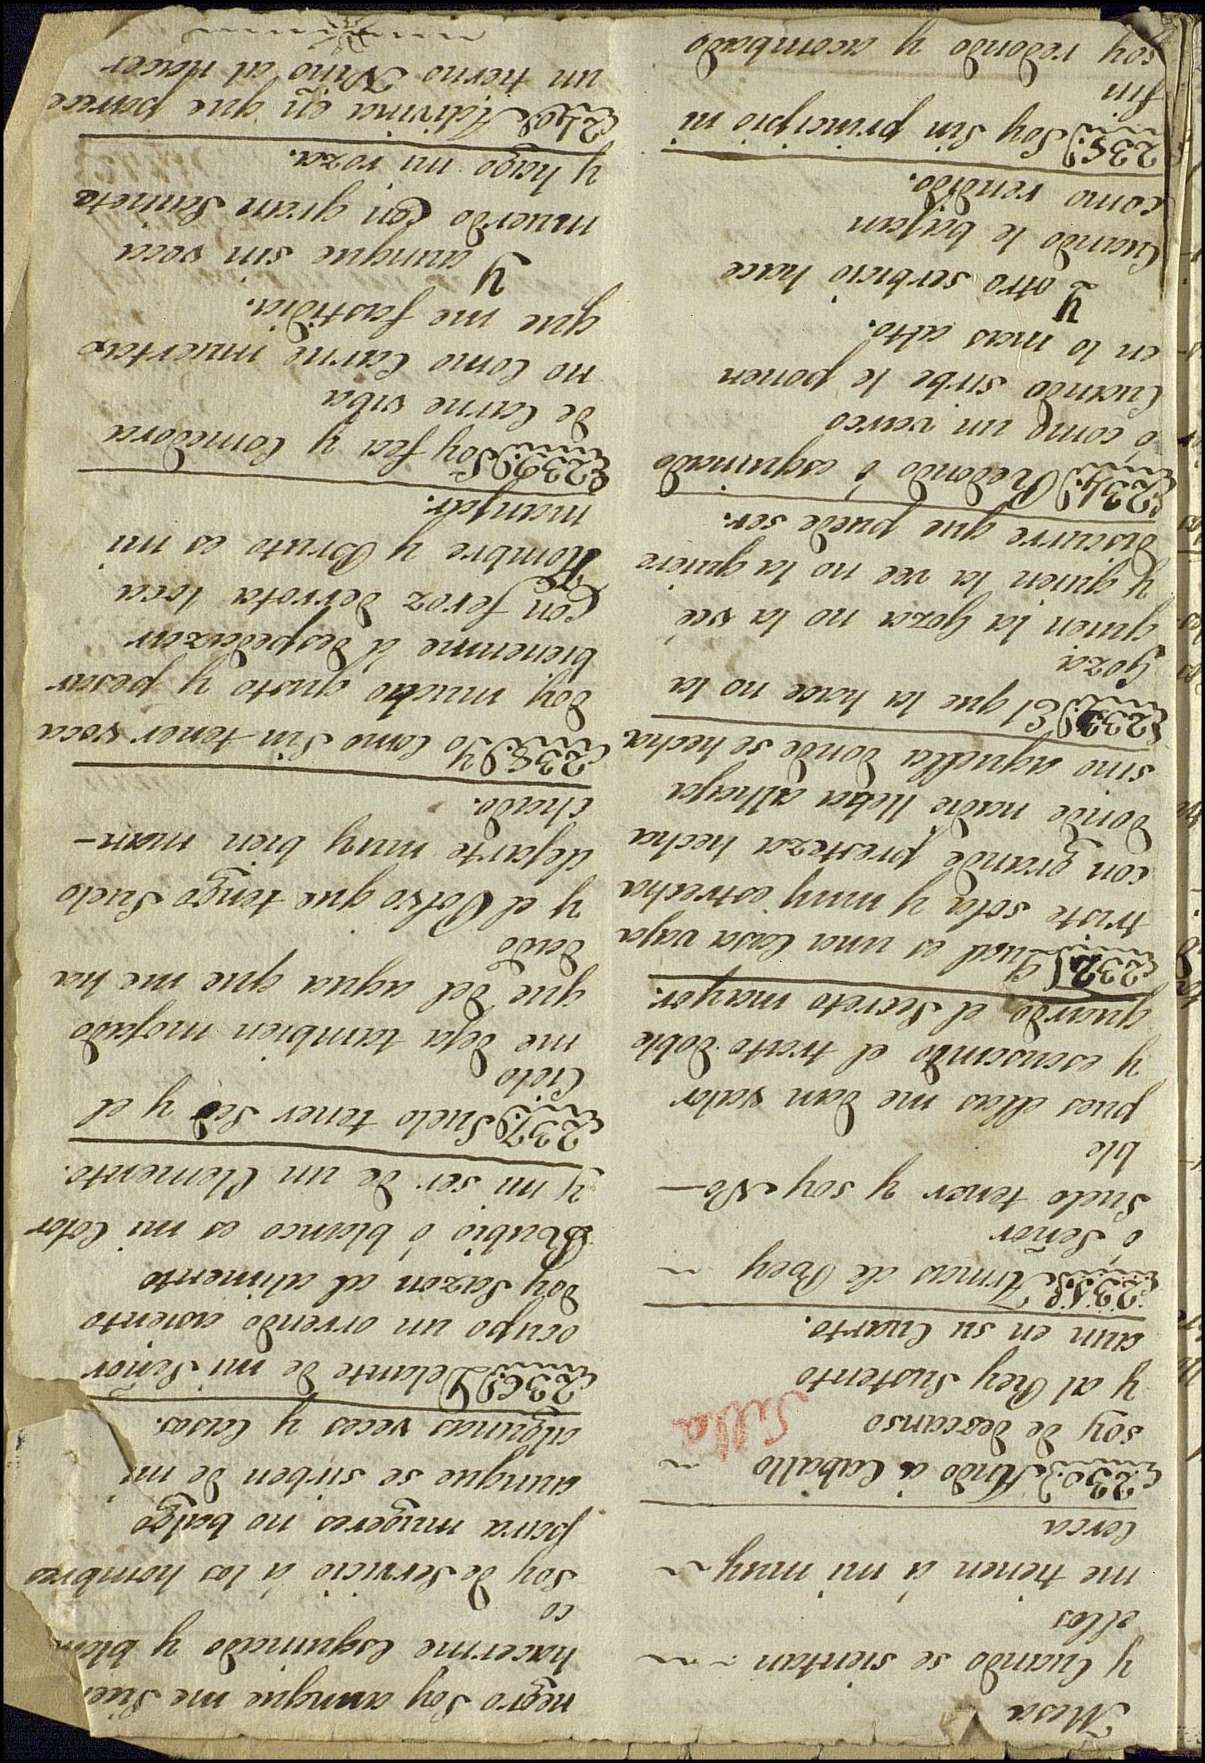 Mesa
y Cuando se sientan
ellos
me tienen á mi muy
Cerca
230 Ando á Caballo
soy de descanso
Silla
y al Rey Sustento
aun en su Cuarto.
231 Armas de Rey
ó Señor
Suelo tener y soy No-
ble
pues ellas me dan valor
y escusando el trato doble
guardo el Secreto mayor.
232 Qual es una Casa vaja
triste sola y muy estrecha
con grande presteza hecha
donde nadie lleba alhaja
sino aquella donde se hecha
233 El que la hace no la
Goza
quien la Goza no la vé
y quien la vee no la quiere
discurre que puede ser.
234 Redondo ó esquinado
ó como un varco
Cuando sirbe le ponen
en lo mas alto.
Y
otro serbicio hace
Cuando le bajan
como rendido.
235 Soy sin principio ni
fin
soy redondo y acombado
negro Soy aunque me Sue
hacerme Esquinado y blan
co
soy de Servicio á los hombres
para mugeres no balgo
aunque se sirben de mi
algunas veces y Casos.
236 Delante de mi Señor
ocupo un orrendo asiento
doy Sazon al alimento
Rubio ó blanco es mi Color
y mi ser de un Elemento.
237 Suelo tener Sed y el
Cielo
me deja tambien mojado
que del agua que me ha
dado
y el Polvo que tengo Suelo
dejarte muy bien man-
chado.
238 Yo Como Sin tener voca
doy mucho gusto y pesar
bienenme á despedazar
Con feroz derrota loca
Hombre y Bruto es mi
manjar.
239 Soy fea y Comedora
de Carne viba
no Como Carne muerta
que me fastidia.
Y
aunque sin voca
muerdo Con gran Sainete
y hago mi roza.
240 Adivina en que parece
un tierno Niño al Nacer